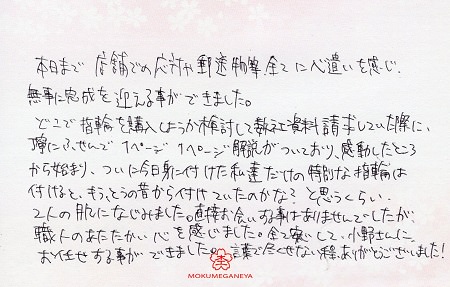 本日まで店舗での応対や郵送物等全てに心遣いを感じ、
無事に完成を迎える事ができました。
どこで指輪を購入しようか検討して数社資料請求していた際に、
丁寧にふせんで1ページ1ページ解説がついており、感動したところ
から始まり、ついに今日身に付けた私達だけの特別な指輪は
付けると、もう、とうの昔から付けていたのかな?と思うくらい、
2人の肌になじみました。直接お会いする事はありませんでしたが、
職人のあたたかい心を感じました。全て安心して、小野さんに
お任せする事ができました。言葉で尽くせない程、ありがとうございました!
MOKUMEGANEYA